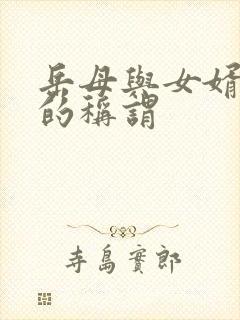 岳母與女婿
的稱謂
寺島實郎